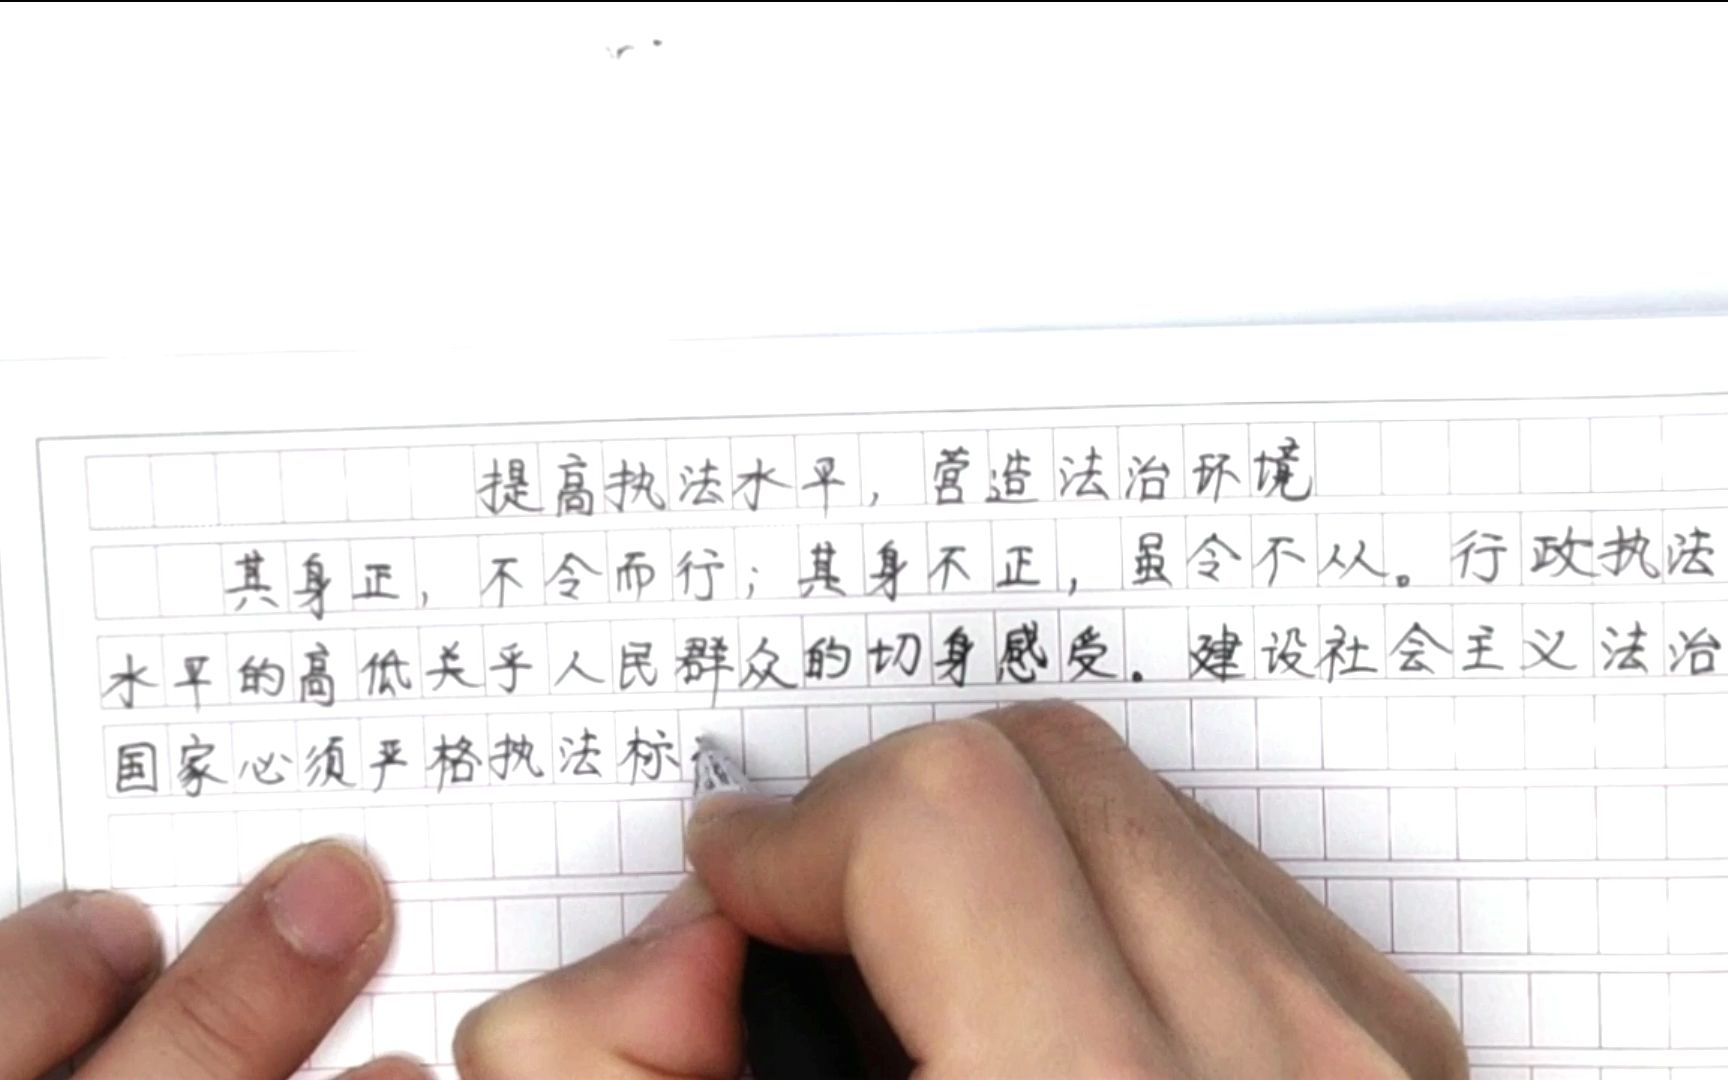 提高执法水平，营造法治环境
其身正，不令而行；其身不正，虽令不从。行政执法
水平的高低关乎人民群众的切身感受.建设社会主义法治
国家必须严格执法标